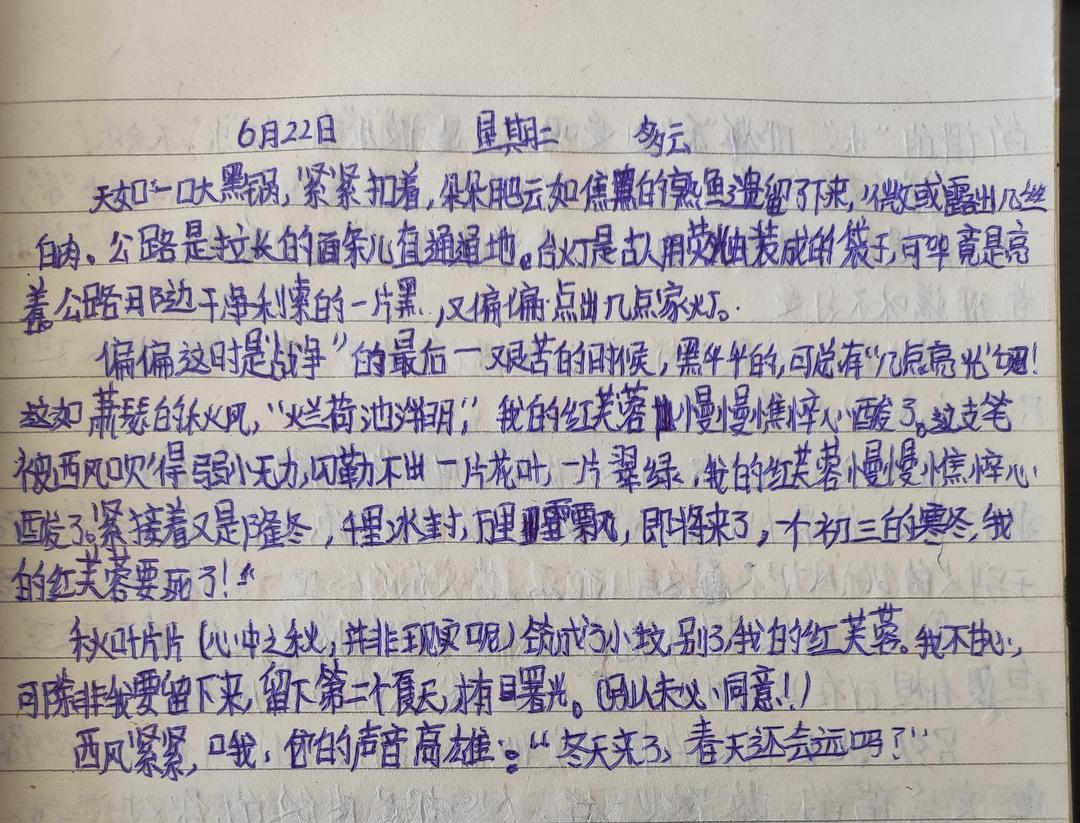 6月22日 星期二 多云
天如一口大黑锅,紧紧扣着,朵朵肥云如焦黑的熟鱼遗留了下来,微或露出几丝
白肉。公路是拉长的面条儿直通通地。台灯是古人用荧油装成的袋子,可毕竟是亮
着。公路那边干净利索的一片黑,又偏偏点出几点家灯。
偏偏这时是“战争”的最后一艰苦的时候,黑乎乎的,可总有“几点亮光”呢!
这如萧瑟的秋风,“烂荷池洪明”,我的红芙蓉慢慢憔悴心酸了。这支笔
被西风吹得弱小无力,勾勒不出一片花叶,一片翠绿,我的红芙蓉慢慢憔悴心
酸了。紧接着又是隆冬,千里冰封,万里雪飘,即将来了,一个初三的寒冬,我
的红芙蓉要死了!”
秋叶片片(心中之秋,并非现实呢)筑成了小坟,别了,我的红芙蓉。我不甘心,
可除非我要留下来,留下第二个夏天,才有曙光。(别人未必同意!)
西风紧紧,哦,他的声音高雄:“冬天来了,春天还会远吗?”